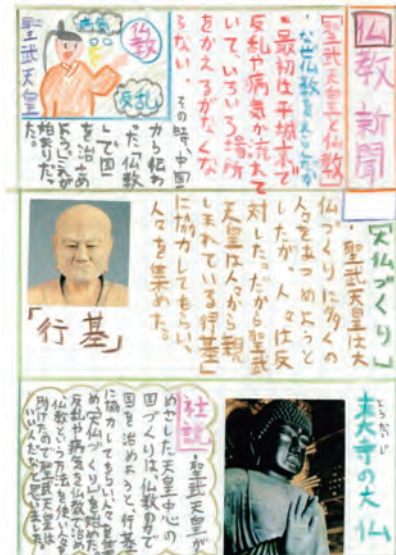 仏教新聞
「聖武天皇と仏教」
・最初は平城京で
反乱や病気が流れて
いて、いろいろ場所
をかえるがなくな
らない。その時、中国
から伝わ
った「仏教
」で国
を治め
よう」これが
始まりだっ
た。
病気
仏教
反乱
聖武天皇
「大仏づくり」
・聖武天皇は大
仏づくりに多くの
人々をあつめようと
したが、人々は反
対した。だから聖武
天皇は人々から親
しまれている「行基」
に協力してもらい、
人々を集めた。
「行基」
とうだいじ
東大寺の大仏
社説
聖武天皇が
めざした天皇中心の
国づくりは、仏教の力で
国を治めようと、行基
に協力してもらい、人々を集
め「大仏づくり」を始めた。
反乱や病気を仏教で治め
仏教という方法を使い人を
助けたので聖武天皇は
いい人だなと思いました。